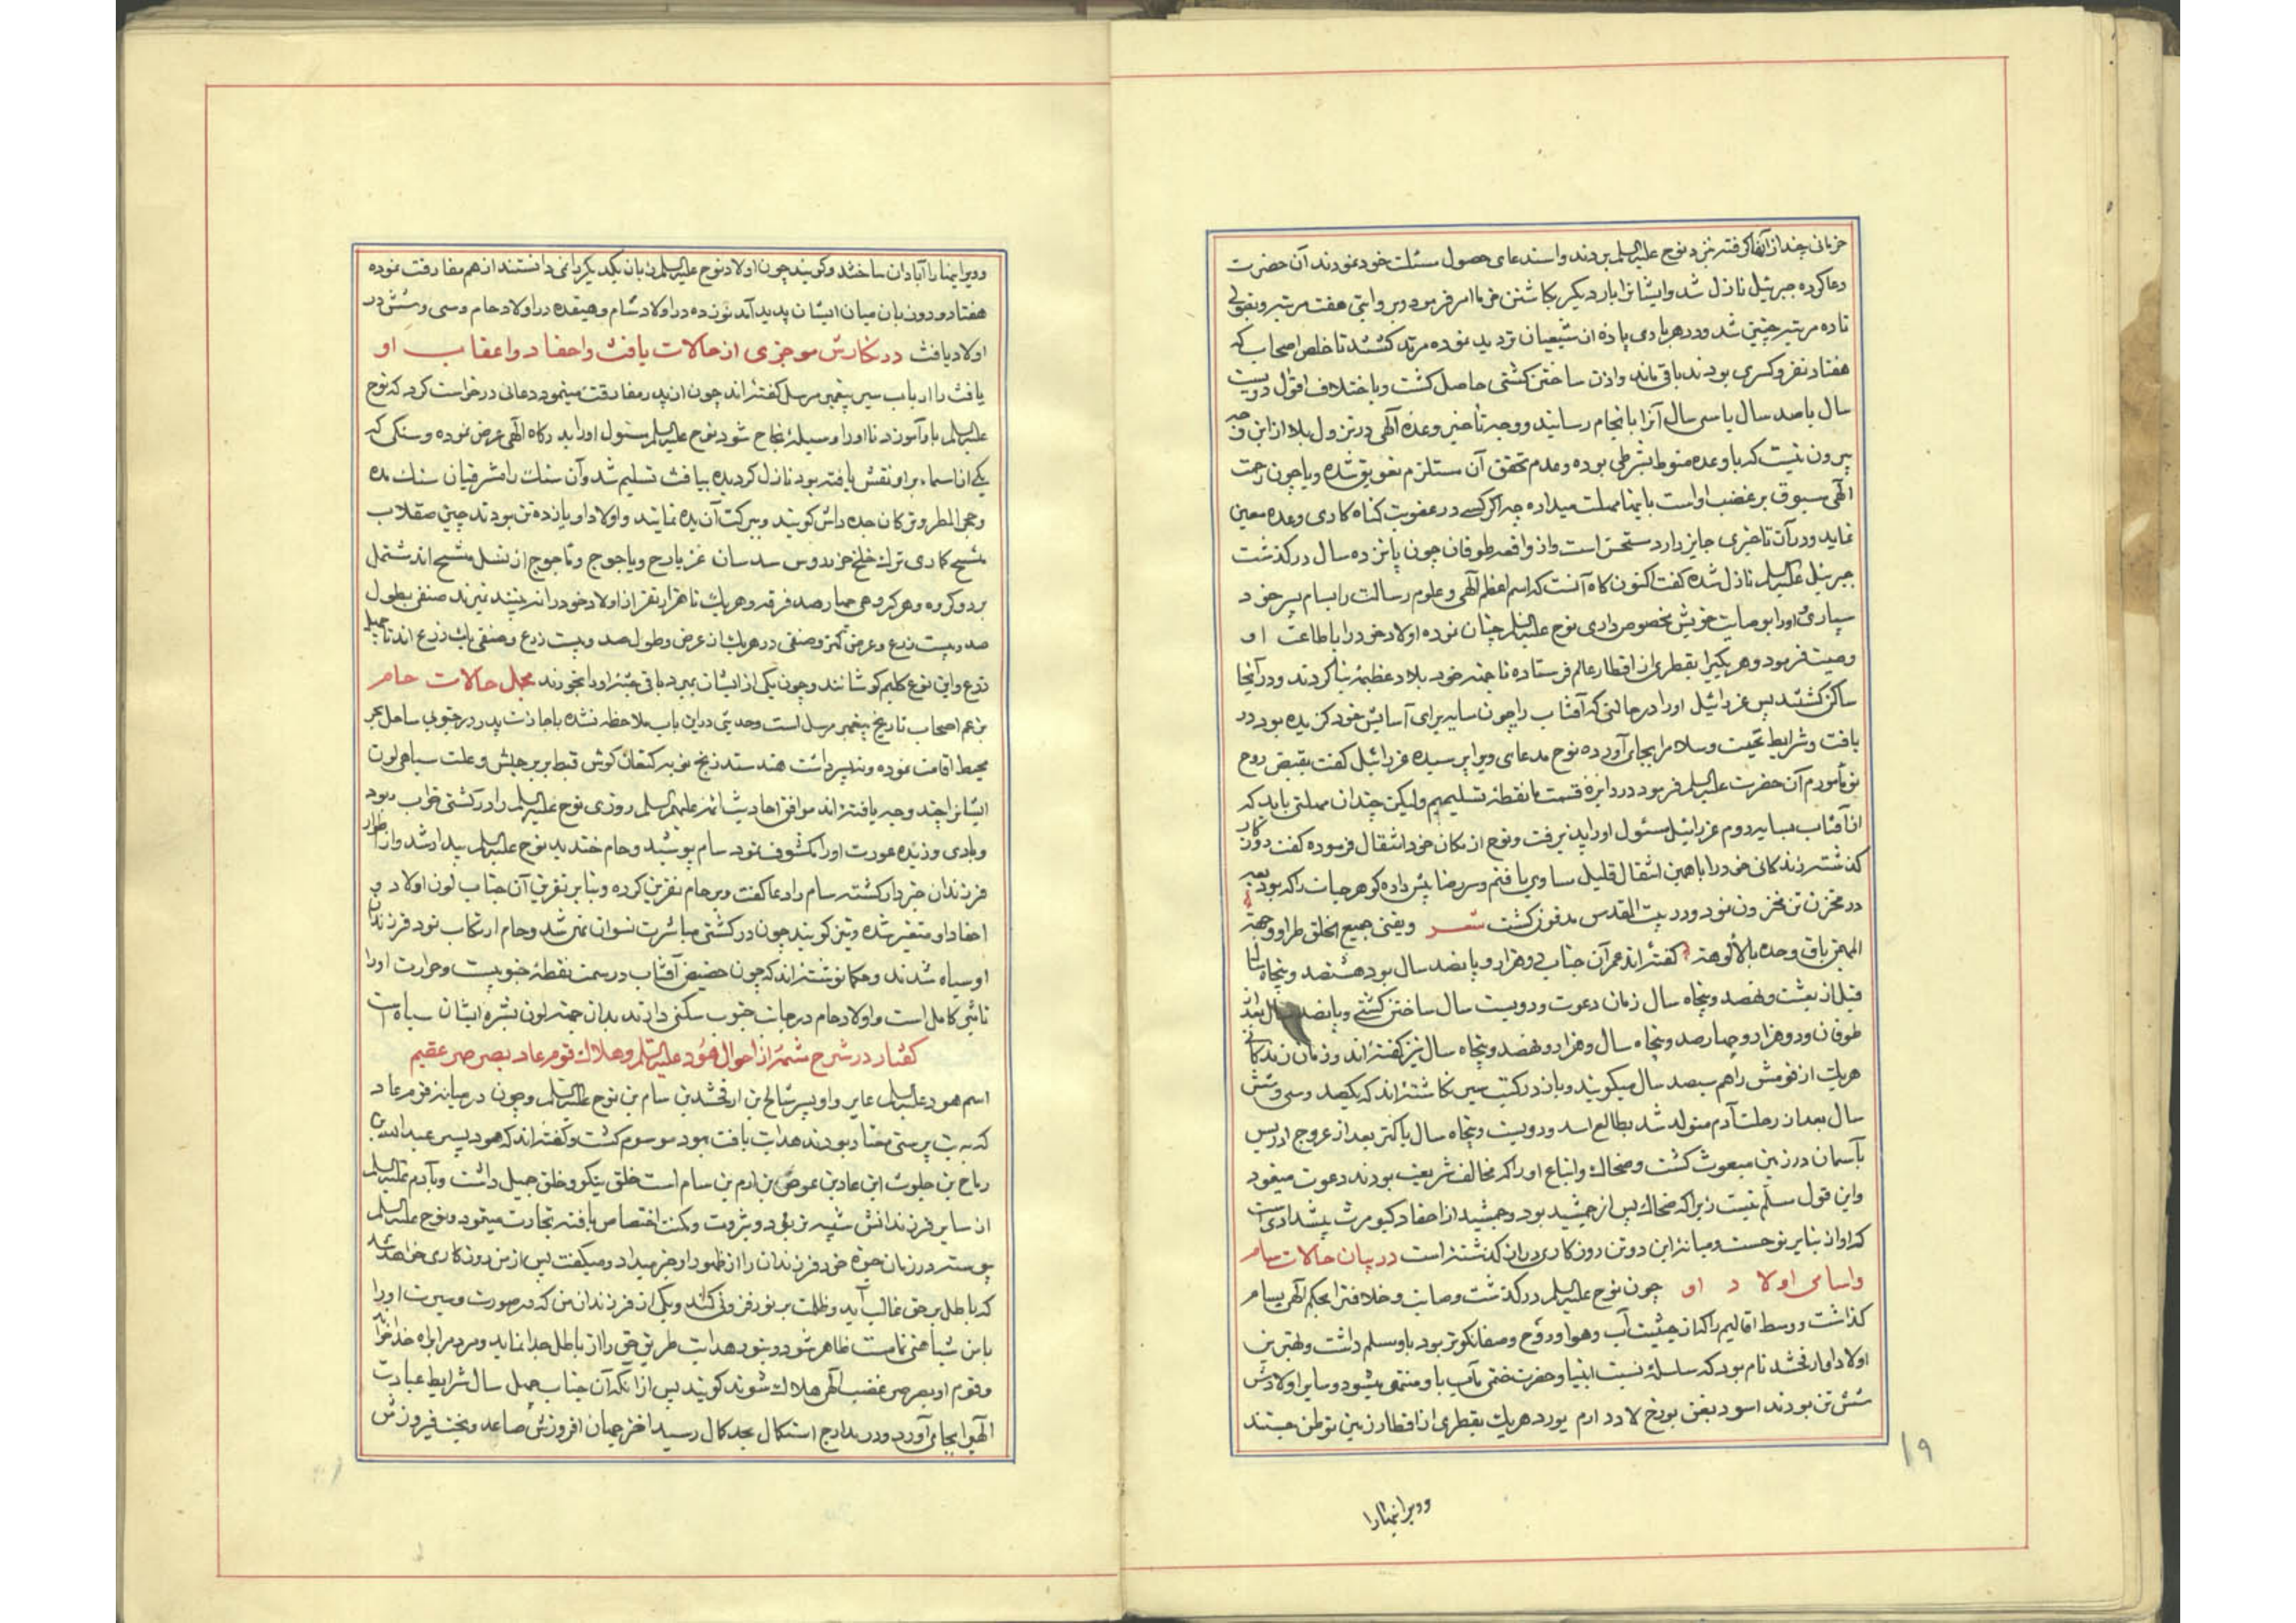 خرمائی چند از آنها گرفته نزد نوح علیه السلم بردند و استدعای حصول مسئلت خود نمودند آن حضرت
دعا کرده جبرئیل نازل شد و ایشانرا بار دیگر بکاشتن خرما امر فرمود و بروایتی هفت مرتبه و بقولی
تا ده مرتبه چنین شد و در هر باری پاره از شیعیان تردید نموده مرتد گشتند تا خلص اصحاب که
هفتاد نفر و کسری بودند باقی ماند و اذن ساختن کشتی حاصل گشت و باختلاف اقوال دویست
سال یا صد سال یا سی سال آنرا بانجام رسانید و وجه تأخیر وعده آلهی در نزول بلا از این
بیرون نیست که یا وعده منوط بشرطی بوده و عدم تحقق آن مستلزم تعویق شده و یا چون رحمت
الهی مسبوق بر غضب اوست باینها مهلت میداده چه اگر کسی در عقوبت گناه کاری وعده معین
نماید و در آن تاخیری جایز دارد مستحسن است و از واقعه طوفان چون پانزده سال درگذشت
جبرئیل علیه السلم نازل شده گفت اکنون گاه آنست که اسم اعظم الهی و علوم رسالت را بسام پسر خود
سپاری و او را بوصایت خویش مخصوص داری نوح علیه السلم چنان نموده اولاد خود را باطاعت او
وصیت فرمود و هر یکیرا بقطری از اقطار عالم فرستاده تا جهته خود بلاد عظیمه بنا کردند و در آنجا
ساکن گشتند پس عزرائیل او را در حالتی که آفتاب را چون سایه برای آسایش خود گزیده بود در
یافت و شرایط تحیت و سلام را بجای آورده نوح مدعای ویرا پرسیده عزرائیل گفت بقبض روح
تو مأمورم آن حضرت علیه السلم فرمود در دایره قسمت ما نقطه تسلیمیم ولیکن چندان مهلتی باید که
از آفتاب بسایه روم عزرائیل مسئول او را پذیرفت و نوح از مکان خود انتقال فرموده گفت دوران
گذشته زندگانی خود را با همین انتقال قلیل مساوی یافتم و سر رضا پیش داده گوهر حیات را که بود
در مخزن تن مخزون نمود و در بیت المقدس مدفون گشت شعر ویفنی جمیع الخلق طرا ووجهه
المهیمن باق وحده بالألوهته گفته اند عمر آن جناب دو هزار و پانصد سال بود هشتصد و پنجاه سال
قبل از بعثت و نهصد و پنجاه سال زمان دعوت و دویست سال ساختن کشتی و پانصد سال بعد از
طوفان و دو هزار و چهارصد و پنجاه سال و هزار و نهصد و پنجاه سال نیز گفته اند و زمان زندگانی
هریک از قومش را هم سیصد سال میگویند و باز در کتب سیر نگاشته اند که یکصد و سی و شش
سال بعد از رحلت آدم متولد شد بطالع اسد و دویست و پنجاه سال یا کمتر بعد از عروج ادریس
بآسمان در زمین مبعوث گشت و ضحاک و اتباع او را که مخالف شریعت بودند دعوت مینمود
و این قول مسلّم نیست زیرا که ضحاک پس از جمشید بود و جمشید از احفاد کیومرث پیشدادی است
که او از بنایر نوحست و میانه این دو تن روزگاری دراز گذشته است در بیان حالات سام
و اسامی اولاد او چون نوح علیه السلم درگذشت وصایت و خلافت را بحکم الهی بسام
گذاشت و وسط اقالیم را که از حیثیت آب و هوا و روح و صفا نکوتر بود باو مسلم داشت و بهترین
اولاد او ارفخشد نام بود که سلسله نسب انبیا و حضرت ختمی مآب باو منتهی میشود و سایر اولادش
شش تن بودند اسود یفن بورخ لاود ارم یورد هریک بقطری از اقطار زمین توطن جستند
۱۹
و ویرانیها را
و ویرانیها را آبادان ساختند و گویند چون اولاد نوح علیه السلم زبان یکدیگر را نمی دانستند از هم مفارقت نموده
هفتاد و دو زبان میان ایشان پدید آمد نوزده در اولاد سام و هفده در اولاد حام و سی و شش در
اولاد یافث در نگارش موجزی از حالات یافث و احفاد و اعقاب او
یافث را ارباب سیر پیغمبر مرسل گفته اند چون از پدر مفارقت مینمود دعائی درخواست کرد که نوح
علیه السلم باو آموزد تا او را وسیله انجاح شود نوح علیه السلم مسئول او را بدرگاه الهی عرض نموده و سنگی که
یکی از اسماء بر او نقش یافته بود نازل گردیده بیافث تسلیم شد و آن سنک را مشرقیان سنک یده
و حجر المطر و ترکان جده داش گویند و ببرکت آن یده نمایند و اولاد او یازده تن بودند چین صقلاب
منسج کماری ترک خلخ خزر روس سدسان غز یارج و یاجوج و ماجوج از نسل منسج اند مشتمل
بر دو گروه و هر گروهی چهارصد فرقه و هریک تا هزار نفر از اولاد خود را نه بینند نمیرند صنفی بطول
صد و بیست ذرع و عرض کمتر و صنفی در هریک از عرض و طول صد و بیست ذرع و صنفی یک ذرع اند تا چهل
ذرع و این نوع گلیم گوشانند و چون یکی از ایشان بمیرد باقی جثه او را بخورند مجمل حالات حام
بزعم اصحاب تاریخ پیغمبر مرسل است و حدیثی در این باب ملاحظه نشده باجازت پدر در جنوبی ساحل بحر
محیط اقامت نموده و نه پسر داشت هند سند زنج نوبه کنعان کوش قبط بربر حبش و علت سیاهی لون
ایشانرا چند وجه یافته اند موافق احادیث ائمه علیهم السلم روزی نوح علیه السلم را در کشتی خواب ربود
و بادی وزیده عورت او را مکشوف نمود سام پوشید و حام خندید نوح علیه السلم بیدار شد و از اطوار
فرزندان خبردار گشته سام را دعا گفت و بر حام نفرین کرده و بنا بر نفرین آن جناب لون اولاد و
احفاد او متغیر شده و نیز گویند چون در کشتی مباشرت نسوان نهی شد و حام ارتکاب نمود فرزندان
او سیاه شدند و حکما نوشته اند که چون حضیض آفتاب در سمت نقطه جنوبیست و حرارت او را
تاثیر کامل است و اولاد حام در جهات جنوب سکنی دارند بدان جهته لون بشره ایشان سیاه است
گفتار در شرح شمّه از احوال هود علیه السلم و هلاک قوم عاد بصرصر عقیم
اسم هود علیه السلم عابر و او پسر شالخ بن ارفخشد بن سام بن نوح علیه السلم و چون در میانه قوم عاد
که به بت پرستی معتاد بودند هدایت یافت بهود موسوم گشت و گفته اند که هود پسر عبد الله بن
رباح بن جلوث ابن عاد بن عوص بن ارم بن سام است خلق نیکو و خلق جمیل داشت و بآدم علیه السلم
از سایر فرزندانش شبیه تر بود و بثروت و مکنت اختصاص یافته تجارت مینمود و نوح علیه السلم
پیوسته در زمان حیوة خود فرزندان را از ظهور او خبر میداد و میگفت پس از من روزگاری خواهد شد
که باطل بر حق غالب آید و ظلمت بر نور فزونی کند و یکی از فرزندان من که در صورت و سیرت او را
با من شباهتی تمامست ظاهر شود و بنور هدایت طریق حق را از باطل جدا نماید و مردم را براه خدا خواند
و قوم او بصرصر غضب الهی هلاک شوند گویند پس از آنکه آن جناب چهل سال شرایط عبادت
الهی را بجای آورد و در مدارج استکمال بحد کمال رسید اختر جهان افروزش صاعد و بخت فیروزش